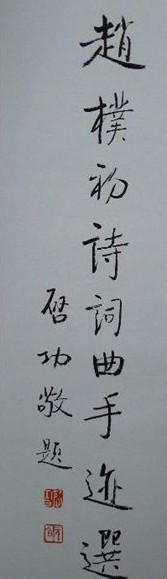 趙樸初詩詞曲手迹選
啓功敬題